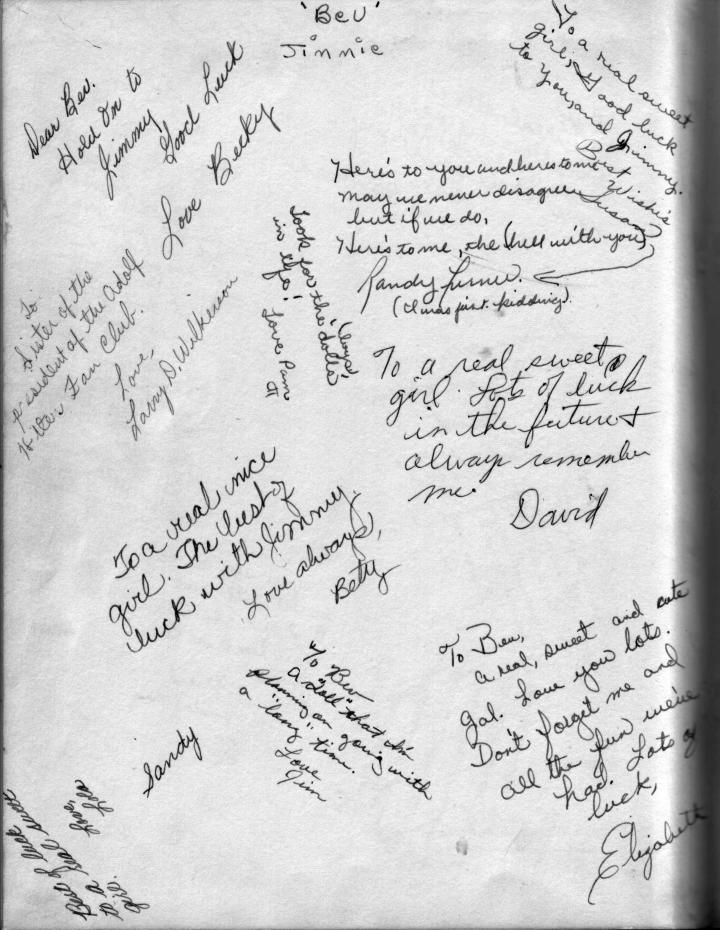 'Bev'
Jinnie
To a real sweet
girl, Good luck
to you, and Jimmy.
Best
Wishes
Susan
Dear Bev.
Hold on to
Jimmy
Good Luck
Love Becky
Here's to you and heres to me
may we never disagree
but if we do,
Here's to me, the (hell with you)
Randy
(I was just kidding).
Look for the "boys"
in the dolls
life!
Love Pam
To
Sister of the
President of the Adolf
Hitler Fan Club.
Love,
Larry D. Wilkerson
To a real sweet
girl. Lots of luck
in the future &
always remember
me.
David
To a real nice
girl. The best of
luck with Jimmy.
Love always,
Betty
To Bev,
a real, sweet and cute
gal. Love you lots.
Don't forget me and
all the fun we've
had. Lots of
luck,
Elizabeth
To Bev
A "doll" that I'm
planning on going with
a "long" time.
Love
Jim
Sandy
Best of luck
to a real sweet
girl.
Love,